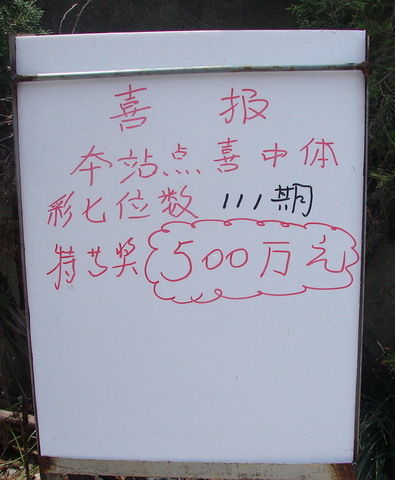 喜报
本站点喜中体
彩七位数 111期
特等奖 500万元